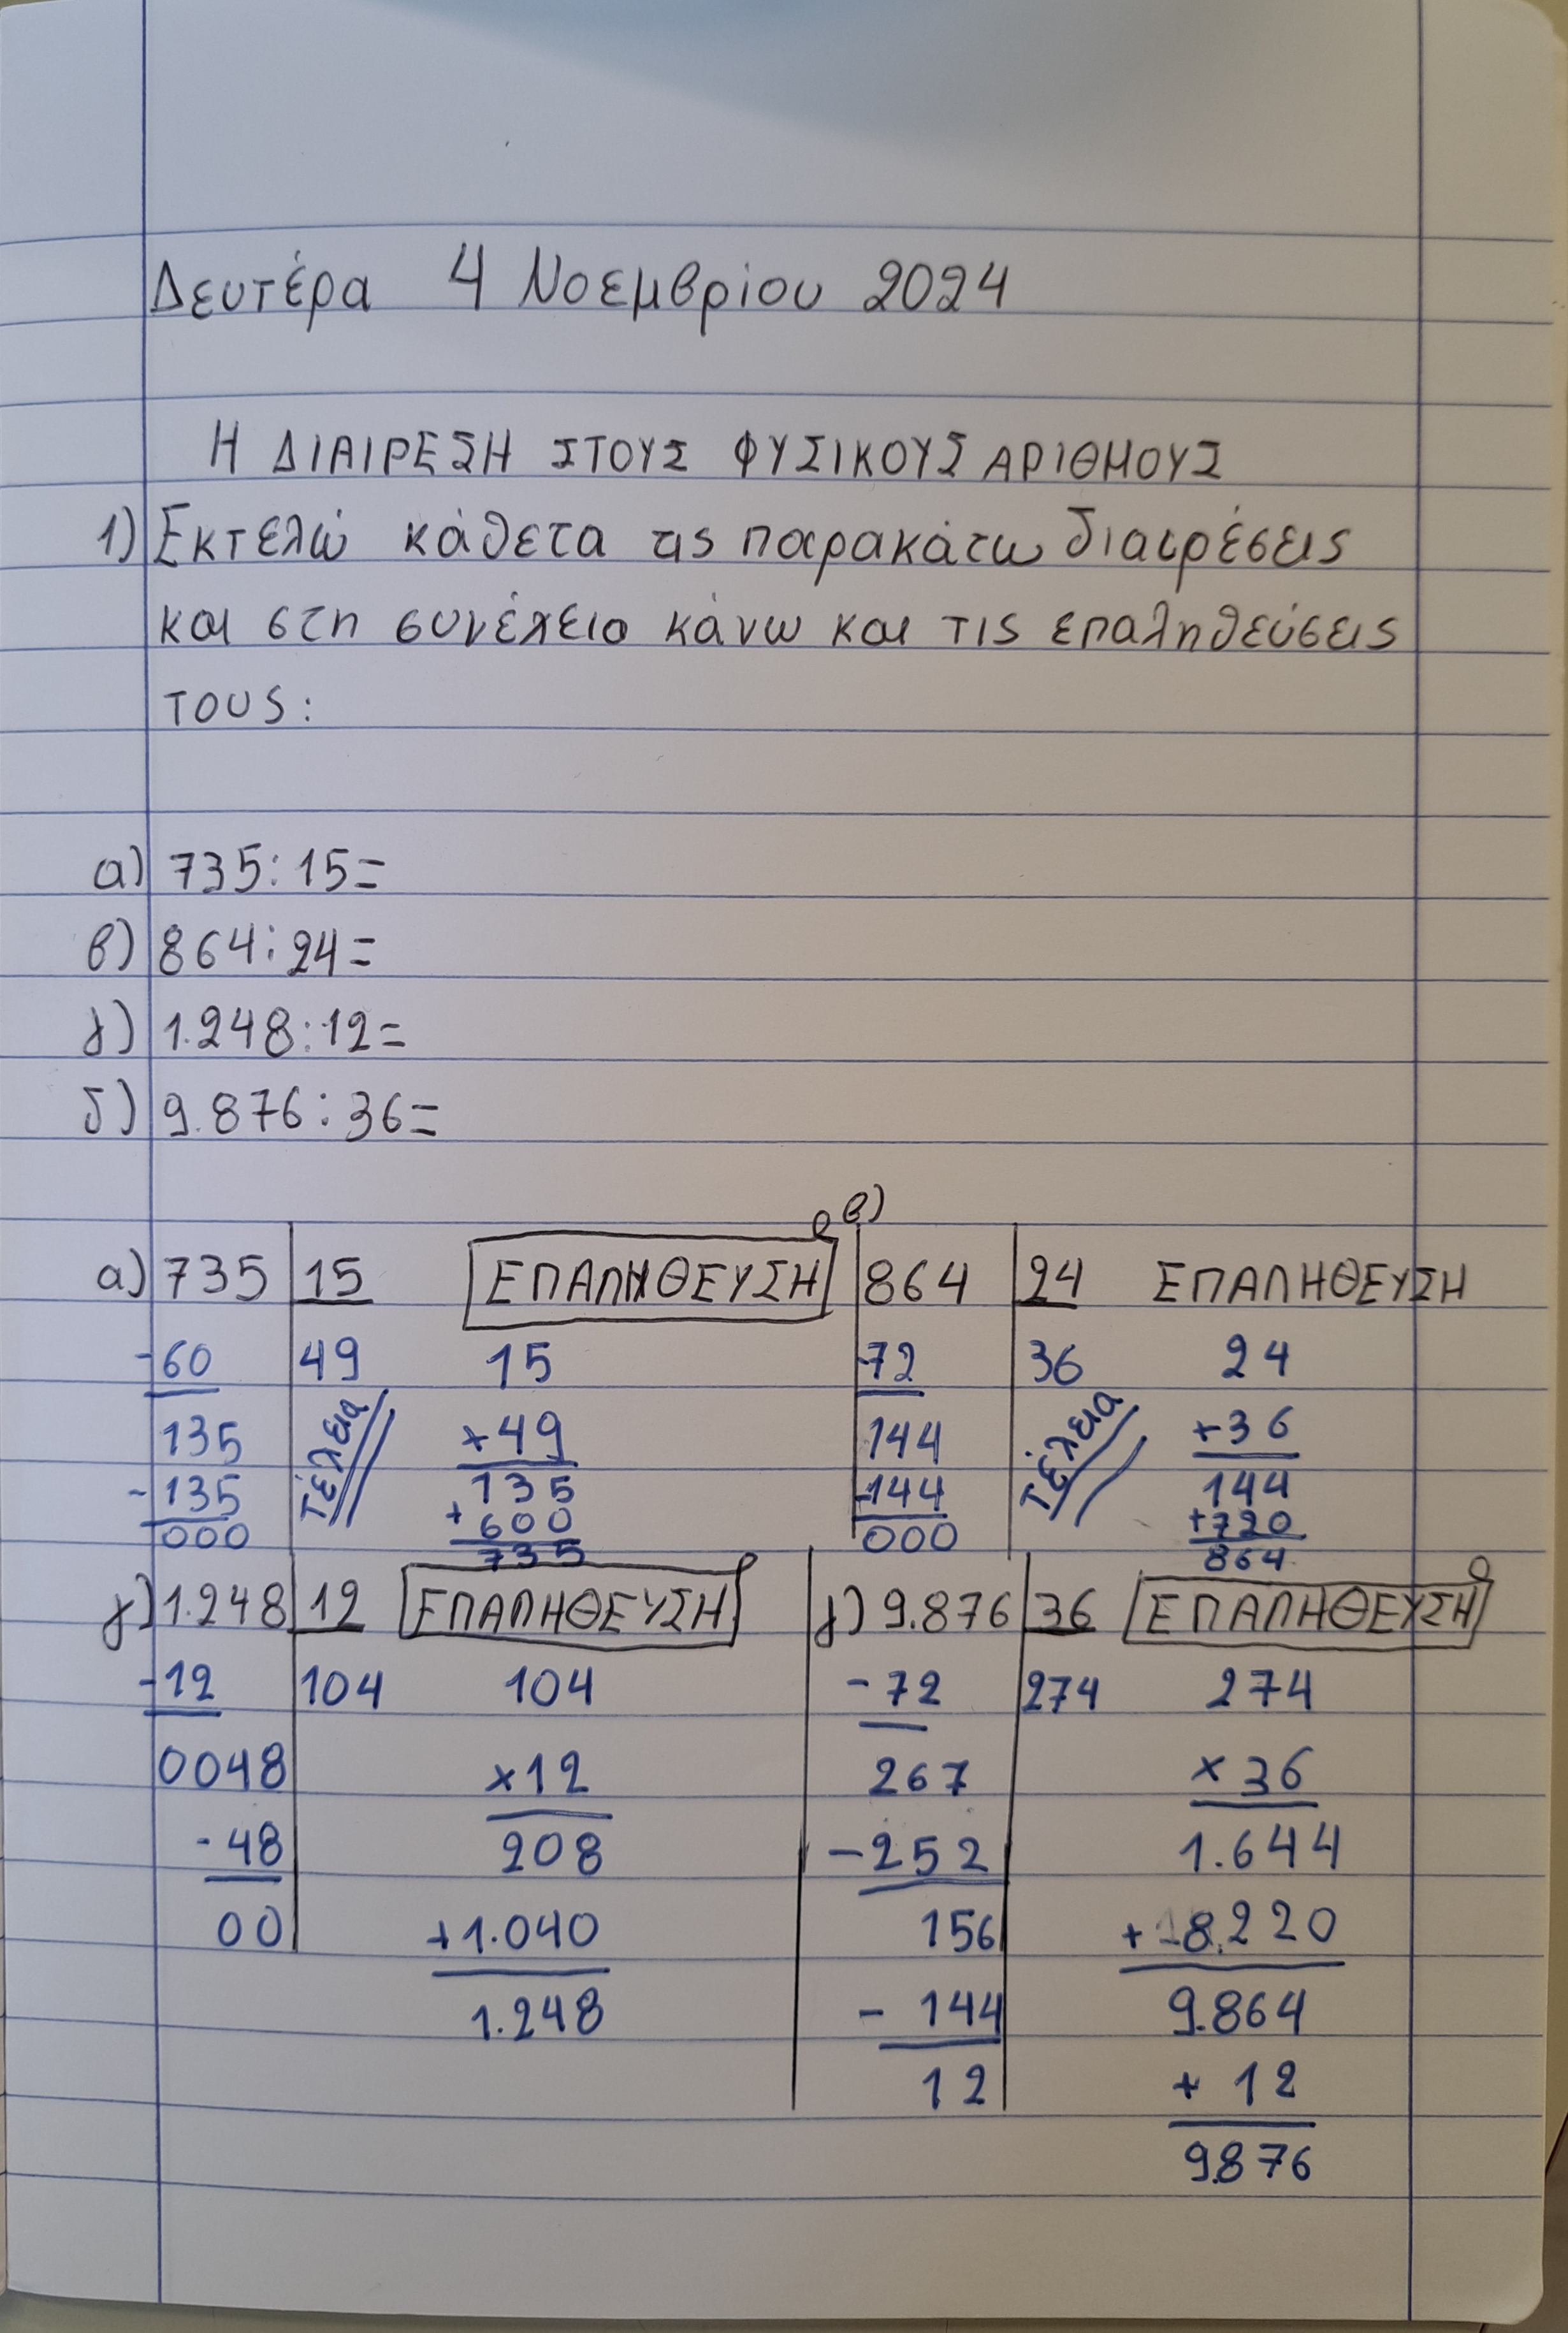 Δευτέρα 4 Νοεμβρίου 2024
Η ΔΙΑΙΡΕΣΗ ΣΤΟΥΣ ΦΥΣΙΚΟΥΣ ΑΡΙΘΜΟΥΣ
1) Εκτελώ κάθετα τις παρακάτω διαιρέσεις
και στη συνέχεια κάνω και τις επαληθεύσεις
τους:
α) 735:15=
β) 864:24=
γ) 1.248:12=
δ) 9.876:36=
α) 735 15 ΕΠΑΛΗΘΕΥΣΗ
-60 49 15
135 ×49
-135 135
000 +600
735
Τέλεια
β)
864 24 ΕΠΑΛΗΘΕΥΣΗ
-72 36 24
144 ×36
-144 144
000 +720
864
Τέλεια
γ) 1.248 12 ΕΠΑΛΗΘΕΥΣΗ
-12 104 104
0048 ×12
-48 208
00 +1.040
1.248
δ) 9.876 36 ΕΠΑΛΗΘΕΥΣΗ
-72 274 274
267 ×36
-252 1.644
156 +8.220
-144 9.864
12 +12
9.876